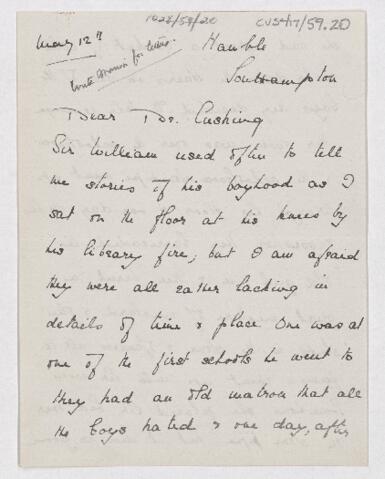 1028/58/20
CUS417/59.20
May 12th
Hamble
Southampton
Dear Dr. Cushing
Sir William used often to tell
me stories of his boyhood as I
sat on the floor at his knees by
his library fire; but I am afraid
they were all rather lacking in
details of time & place One was at
one of the first schools he went to
they had an old matron that all
the boys hated & one day, after